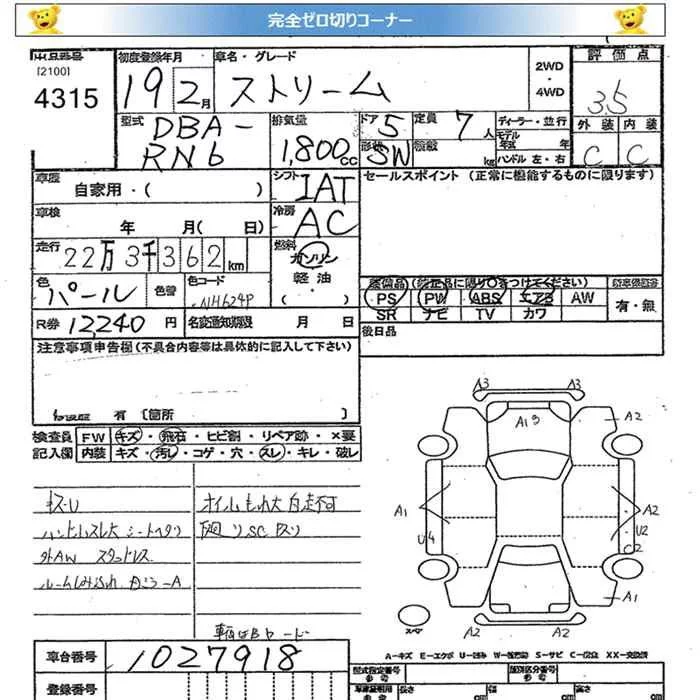 完全ゼロ切りコーナー
出品番号 初度登録年月 車名・グレード 2WD ・ 4WD 評価点
[2100]
4315 19 2月 ストリーム 3.5
型式 排気量 ドア 5 定員 7人 ディーラー・並行 外装 内装
DBA- 1,800cc 形状 SW 積載 kg モデル年式 年 C C
RN6 ハンドル 左・右
車歴 自家用・( ) シフト IAT セールスポイント (正常に機能するものに限ります)
車検 年 月( 日) 冷房 AC
走行 22万3千362km 燃料 ガソリン
軽油
・( )
色 パール 色替 色コード NH624P
装備品 (純正品に限り○をつけてください)
PS PW ABS エアB AW 有・無
SR ナビ TV カワ
R券 12240円 名変通知期限 月 日
後日品
注意事項申告欄(不具合内容等は具体的に記入して下さい)
有 〔箇所 〕
検査員 FW キズ・飛石・ヒビ割・リペア跡・×要
記入欄 内装 キズ・汚レ・コゲ・穴・スレ・キレ・破レ
オイルもれ大 自走不可
外AW スタッドレス
A3 A3
A1 3 A2
A1 A2
U4 U2
A1
スペア
A2 A2
A-キズ E-エクボ U-凹み W-波打ち S-サビ C-腐食 XX-交換済
車台番号 1027918 型式指定番号 類別区分番号
登録番号 長さ cm 幅 cm 高さ cm